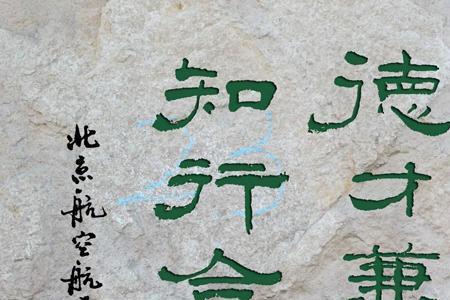 德才兼
知行合
北京航空航